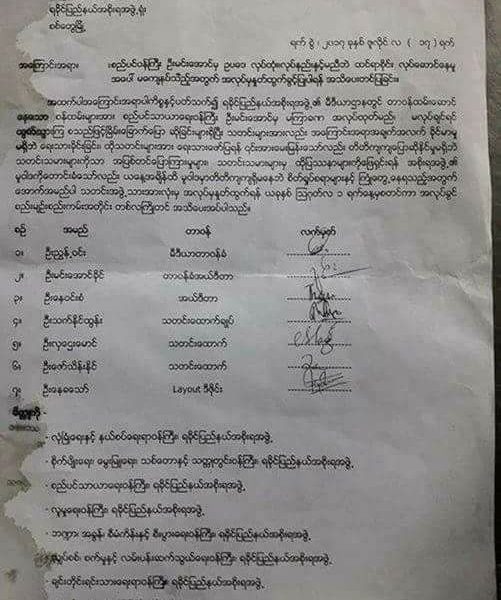 ရခိုင်ပြည်နယ်အစိုးရအဖွဲ့ရုံး
စစ်တွေမြို့
ရက်စွဲ၊ ၂၀၁၇ ခုနှစ် ဇူလိုင် လ ( ၁၇ ) ရက်
အကြောင်းအရာ။ ။စည်ပင်ဝန်ကြီး ဦးမင်းအောင်မှ ဥပဒေ လုပ်ထုံးလုပ်နည်းနှင့်မညီဘဲ ထင်ရာစိုင်း လုပ်ဆောင်နေမှု
အပေါ် မကျေနပ်သည့်အတွက် အလုပ်မှနှုတ်ထွက်ခွင့်ပြုပါရန် အသိပေးတင်ပြခြင်း။
အထက်ပါအကြောင်းအရာပါကိစ္စနှင့်ပတ်သက်၍ ရခိုင်ပြည်နယ်အစိုးရအဖွဲ့၏ မီဒီယာဌာနတွင် တာဝန်ထမ်းဆောင်
နေသော ဝန်ထမ်းများအား စည်ပင်သာယာဝန်ကြီး ဦးမင်းအောင်မှ မကြာခဏ အလုပ်ထုတ်မည်၊ မလုပ်ချင်ရင်
ထွက်သွားကြ စသည်ဖြင့်ခြိမ်းခြောက်ပြော ဆိုခြင်းများရှိပြီး သတင်းများအားလည်း အကြောင်းအရာအချက်အလက် ခိုင်မာမှု
မရှိဘဲ ရေးသားခိုင်းခြင်း၊ ထိုသတင်းများအား ရေးသားဖော်ပြရန် ၎င်းအားမေးမြန်းသော်လည်း တိတိကျကျပြောဆိုနိုင်မှုမရှိဘဲ
သတင်းသမားများကိုသာ အပြစ်တင်ပြောကြားမှုများ၊ သတင်းသမားများမှ ထိုပြဿနာများကိုဖြေရှင်းရန် အစိုးရအဖွဲ့၏
မူဝါဒကိုတောင်းခံသော်လည်း ယနေ့အချိန်ထိ မူဝါဒမှာတိတိကျကျရှိမနေဘဲ စိတ်ရှုပ်စရာများနှင့် ကြုံတွေ့နေရသည့်အတွက်
အောက်အမည်ပါ သတင်းအဖွဲ့သားအားလုံးမှ အလုပ်မှနှုတ်ထွက်ရန် ယခုနှစ် ဩဂုတ်လ ၁ ရက်နေ့မှစတင်ကာ အလုပ်ခွင်
စည်းမျဉ်းစည်းကမ်းအတိုင်း တစ်လကြိုတင် အသိပေးအပ်ပါသည်။
စဉ် အမည် တာဝန် လက်မှတ်
၁။ ဦးညွန့်ဝင်း မီဒီယာတာဝန်ခံ
၂။ ဦးမင်းအောင်ခိုင် တာဝန်ခံအယ်ဒီတာ
၃။ ဦးနေဝင်းစံ အယ်ဒီတာ
၄။ ဦးသက်နိုင်ထွန်း သတင်းထောက်ချုပ်
၅။ ဦးလှဌေးမောင် သတင်းထောက်
၆။ ဦးဇော်သိန်းနိုင် သတင်းထောက်
၇။ ဦးနေခသော် Layout ဒီဇိုင်း
မိတ္တူကို
- လုံခြုံရေးနှင့် နယ်စပ်ရေးရာဝန်ကြီး၊ ရခိုင်ပြည်နယ်အစိုးရအဖွဲ့
- စိုက်ပျိုးရေး၊ မွေးမြူရေး၊ သစ်တောနှင့် သတ္တုတွင်းဝန်ကြီး၊ ရခိုင်ပြည်နယ်အစိုးရအဖွဲ့
- စည်ပင်သာယာရေးဝန်ကြီး၊ ရခိုင်ပြည်နယ်အစိုးရအဖွဲ့
- လူမှုရေးဝန်ကြီး၊ ရခိုင်ပြည်နယ်အစိုးရအဖွဲ့
- ဘဏ္ဍာ၊ အခွန်၊ စီမံကိန်းနှင့် စီးပွားရေးဝန်ကြီး၊ ရခိုင်ပြည်နယ်အစိုးရအဖွဲ့
- လျှပ်စစ်၊ စက်မှုနှင့် လမ်းပန်းဆက်သွယ်ရေးဝန်ကြီး၊ ရခိုင်ပြည်နယ်အစိုးရအဖွဲ့
- ချင်းတိုင်းရင်းသားရေးရာဝန်ကြီး၊ ရခိုင်ပြည်နယ်အစိုးရအဖွဲ့